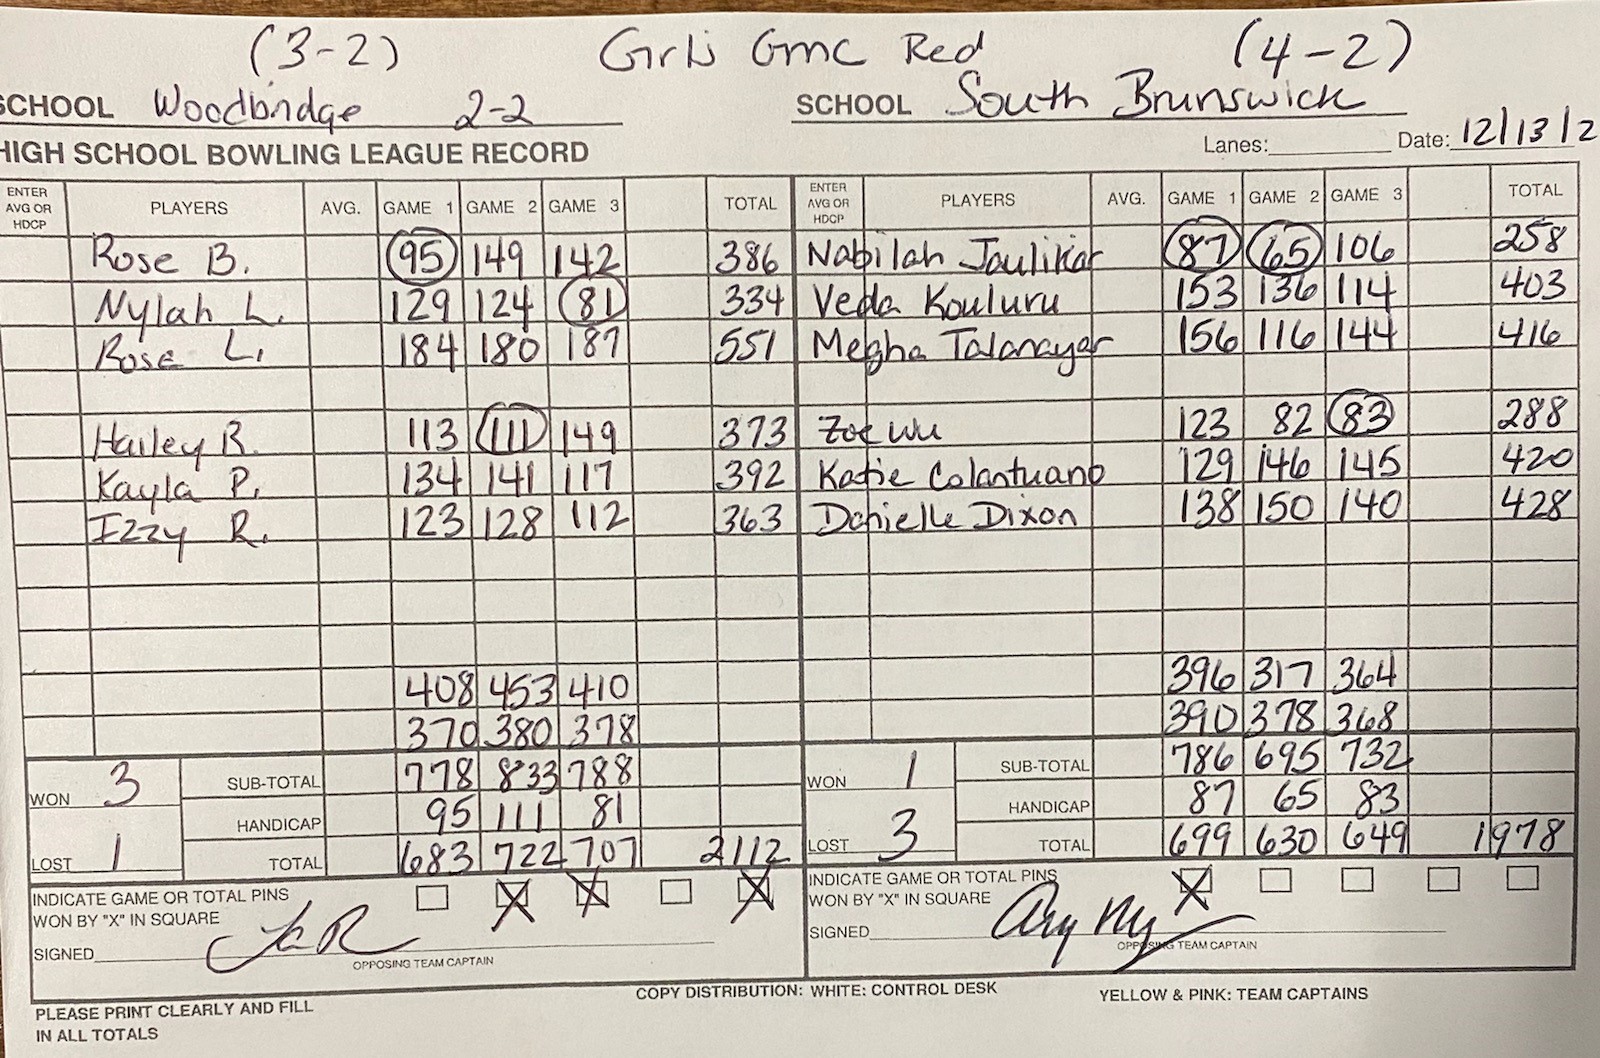 (3-2) Girls GMC Red (4-2)
SCHOOL Woodbridge 2-2 SCHOOL South Brunswick
HIGH SCHOOL BOWLING LEAGUE RECORD Lanes: Date: 12/13/2
ENTER AVG OR HDCP PLAYERS AVG. GAME 1 GAME 2 GAME 3 TOTAL ENTER AVG OR HDCP PLAYERS AVG. GAME 1 GAME 2 GAME 3 TOTAL
Rose B. 95 149 142 386 Nabilah Jaulikar 87 65 106 258
Nylah L. 129 124 81 334 Veda Kouluru 153 136 114 403
Rose L. 184 180 187 551 Megha Talanayar 156 116 144 416
Hailey R. 113 111 149 373 Zoe Wu 123 82 83 288
Kayla P. 134 141 117 392 Katie Colantuano 129 146 145 420
Izzy R. 123 128 112 363 Danielle Dixon 138 150 140 428
408 453 410 396 317 364
370 380 378 390 378 368
SUB-TOTAL 778 833 788 SUB-TOTAL 786 695 732
WON 3 HANDICAP 95 111 81 WON 1 HANDICAP 87 65 83
LOST 1 TOTAL 683 722 707 2112 LOST 3 TOTAL 699 630 649 1978
INDICATE GAME OR TOTAL PINS X X X INDICATE GAME OR TOTAL PINS X
WON BY "X" IN SQUARE WON BY "X" IN SQUARE
SIGNED SIGNED
OPPOSING TEAM CAPTAIN OPPOSING TEAM CAPTAIN
PLEASE PRINT CLEARLY AND FILL COPY DISTRIBUTION: WHITE: CONTROL DESK YELLOW & PINK: TEAM CAPTAINS
IN ALL TOTALS